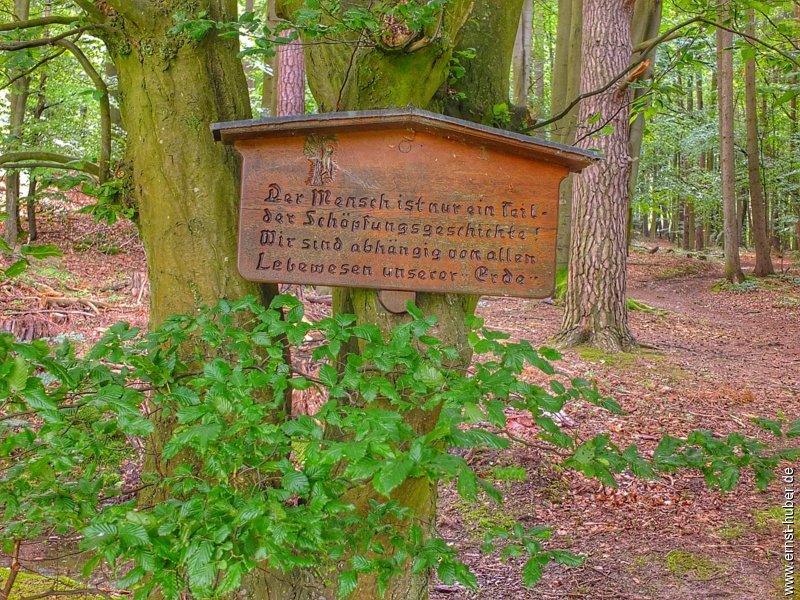 Der Mensch ist nur ein Teil-
der Schöpfungsgeschichte!
Wir sind abhängig von allen
Lebewesen unserer "Erde"
www.ernst-huber.de